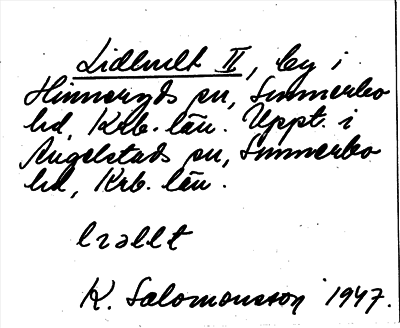 Lidhult II, by i
Hinneryds sn, Sunnerbo
hd, Krb. län. Uppt. i
Angelstads sn, Sunnerbo
hd, Krb. län.
lɪəllt
K. Salomonsson 1947.